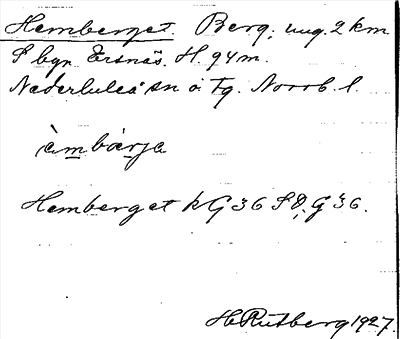 Hemberget. Berg, ung. 2 km
S bgn Ersnäs. H. 94 m.
Nederluleå sn o. Tg. Norrb. l.
àmbárje
Hemberget k G 36 S Ö, G 36.
H Rutberg 1927.